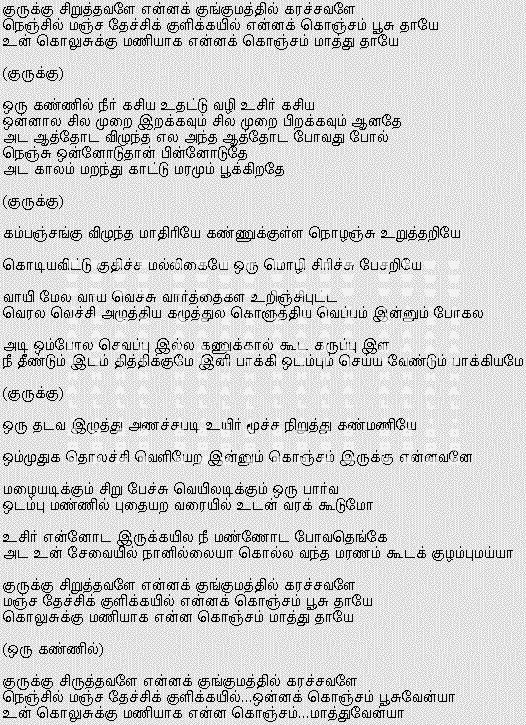 குருக்கு சிறுத்தவளே என்னக் குங்குமத்தில் கரச்சவளே
நெஞ்சில் மஞ்ச தேச்சிக் குளிக்கயில் என்னக் கொஞ்சம் பூசு தாயே
உன் கொலுசுக்கு மணியாக என்னக் கொஞ்சம் மாத்து தாயே
(குருக்கு)
ஒரு கண்ணில் நீர் கசிய உதட்டு வழி உசிர் கசிய
ஒன்னால சில முறை இறக்கவும் சில முறை பிறக்கவும் ஆனதே
அட ஆத்தோட விழுந்த எல அந்த ஆத்தோட போவது போல்
நெஞ்சு ஒன்னோடுதான் பின்னோடுதே
அட காலம் மறந்து காட்டு மரமும் பூக்கிறதே
(குருக்கு)
கம்பஞ்சங்கு விழுந்த மாதிரியே கண்ணுக்குள்ள நொழஞ்சு உறுத்தறியே
கொடியவிட்டு குதிச்ச மல்லிகையே ஒரு மொழி சிரிச்சு பேசறியே
வாயி மேல வாய வெச்சு வார்த்தைகள உறிஞ்சிபுட்ட
வெரல வெச்சி அழுத்திய கழுத்துல கொளுத்திய வெப்பம் இன்னும் போகல
அடி ஒம்போல செவப்பு இல்ல கணுக்கால் கூட கருப்பு இள
நீ தீண்டும் இடம் தித்திக்குமே இனி பாக்கி ஒடம்பும் செய்ய வேண்டும் பாக்கியமே
(குருக்கு)
ஒரு தடவ இழுத்து அணச்சபடி உயிர் மூச்ச நிறுத்து கண்மணியே
ஒம்முதுக தொலச்சி வெளியேற இன்னும் கொஞ்சம் இருக்கு என்னவனே
மழையடிக்கும் சிறு பேச்சு வெயிலடிக்கும் ஒரு பார்வ
ஒடம்பு மண்ணில் புதையற வரையில் உடன் வரக் கூடுமோ
உசிர் என்னோட இருக்கயில நீ மண்ணோட போவதெங்கே
அட உன் சேவையில் நானில்லையா கொல்ல வந்த மரணம் கூடக் குழம்புமய்யா
குருக்கு சிறுத்தவளே என்னக் குங்குமத்தில் கரச்சவளே
மஞ்ச தேச்சிக் குளிக்கயில் என்னக் கொஞ்சம் பூசு தாயே
கொலுசுக்கு மணியாக என்ன கொஞ்சம் மாத்து தாயே
(ஒரு கண்ணில்)
குருக்கு சிருத்தவளே என்னக் குங்குமத்தில் கரச்சவளே
நெஞ்சில் மஞ்ச தேச்சிக் குளிக்கயில்...ஒன்னக் கொஞ்சம் பூசுவேன்யா
உன் கொலுசுக்கு மணியாக என்ன கொஞ்சம்...மாத்துவேன்யா